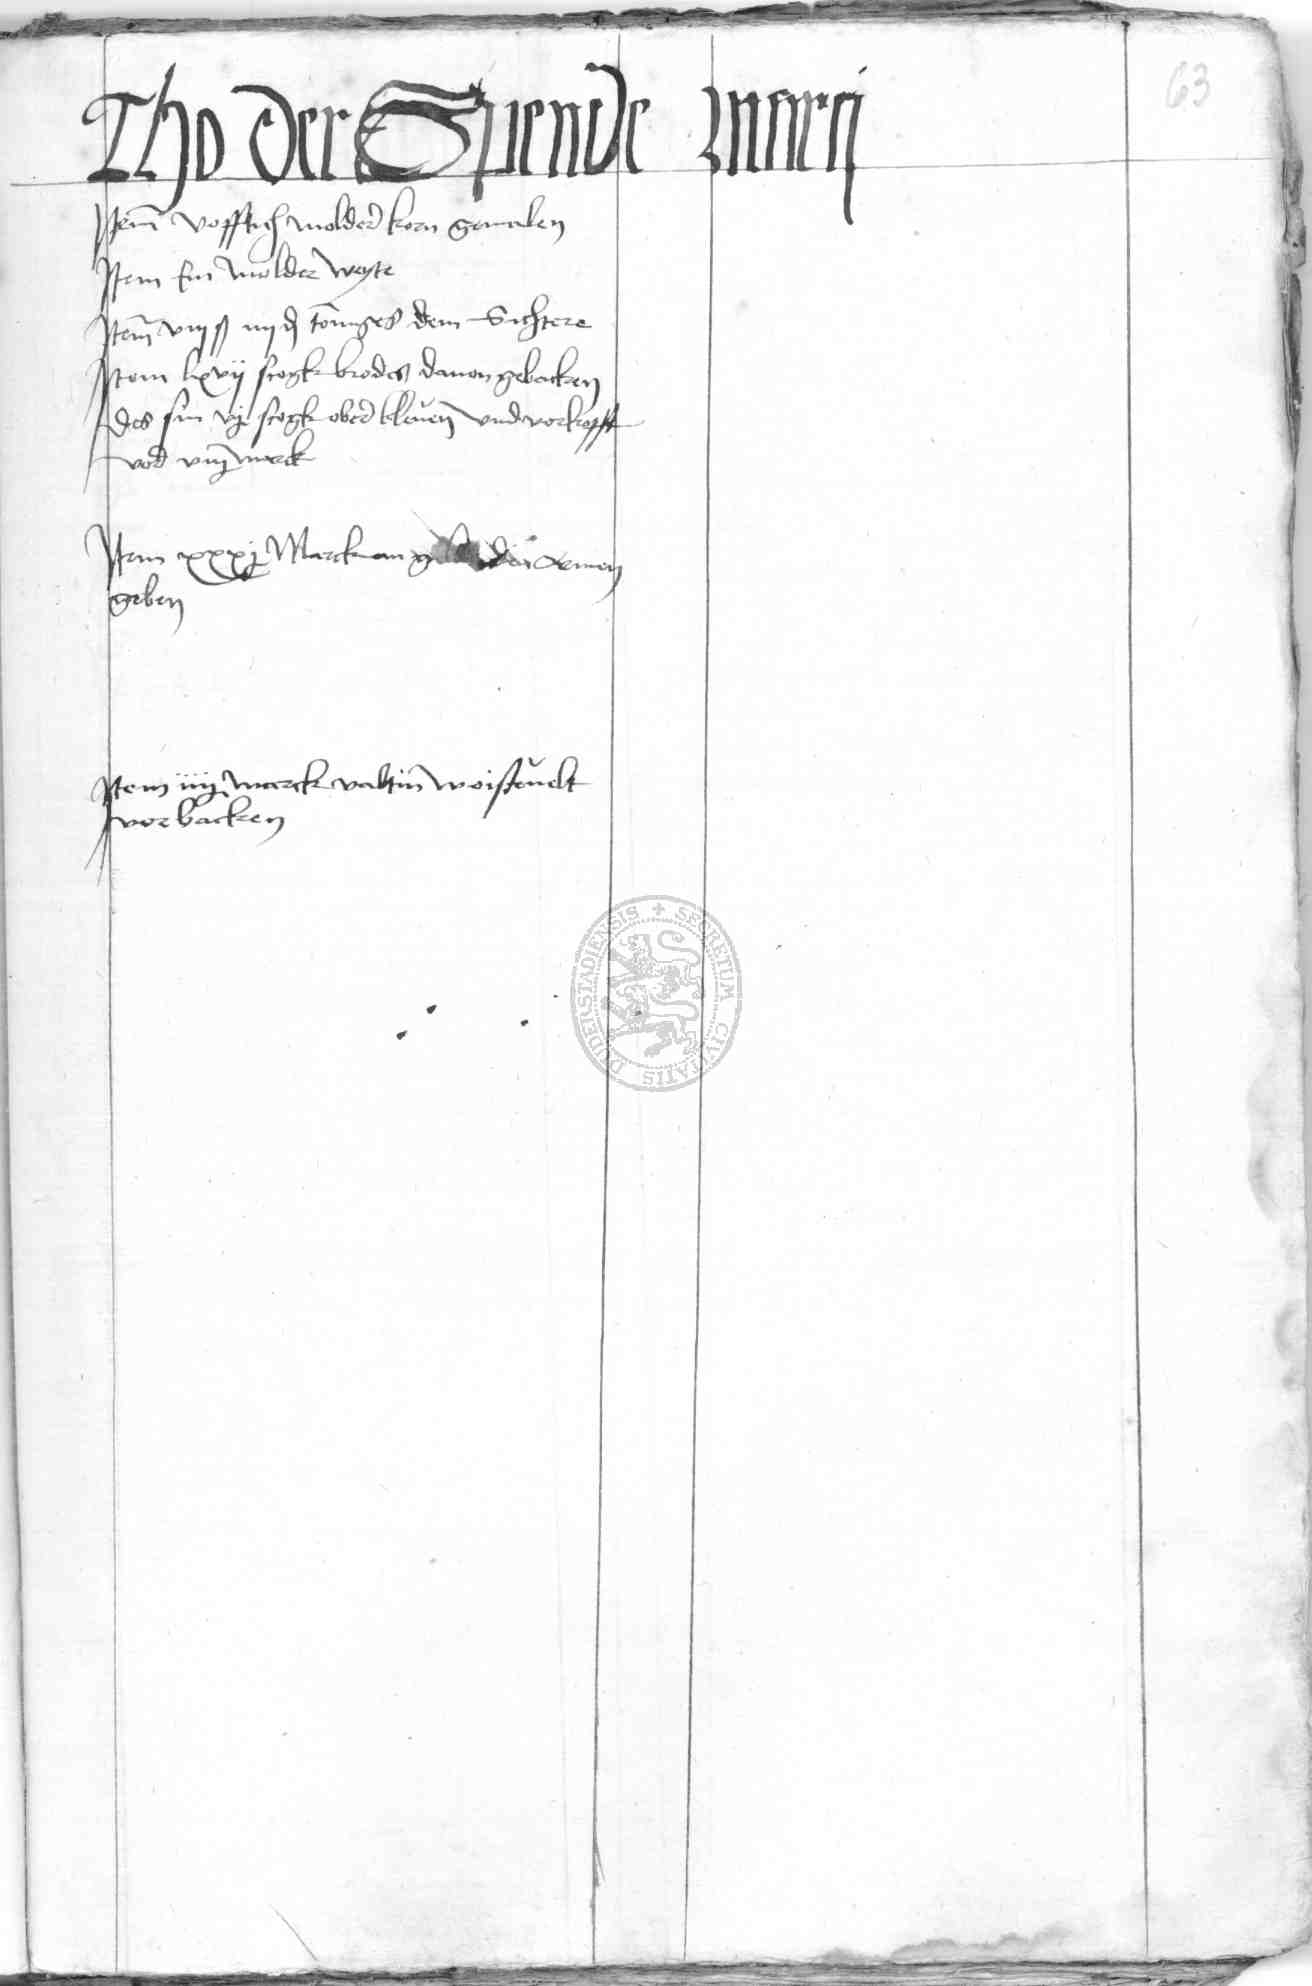 63
Tho der Spende
Item vofftich molder korn gemalen
Item Ein molder weyte
Item viij ß iiij d tonniges dem Sichtere
Item lxvij scogk brodes dauon gebacken
des sin vj scogk ober bleuen vnd vorkofft
vor viij marck
Item xxxj Marck an den Armen
geben
Item iiij marck valtin woisteuelt
vorbacken
SECRETUM CIVITATIS DUDERSTADIENSIS